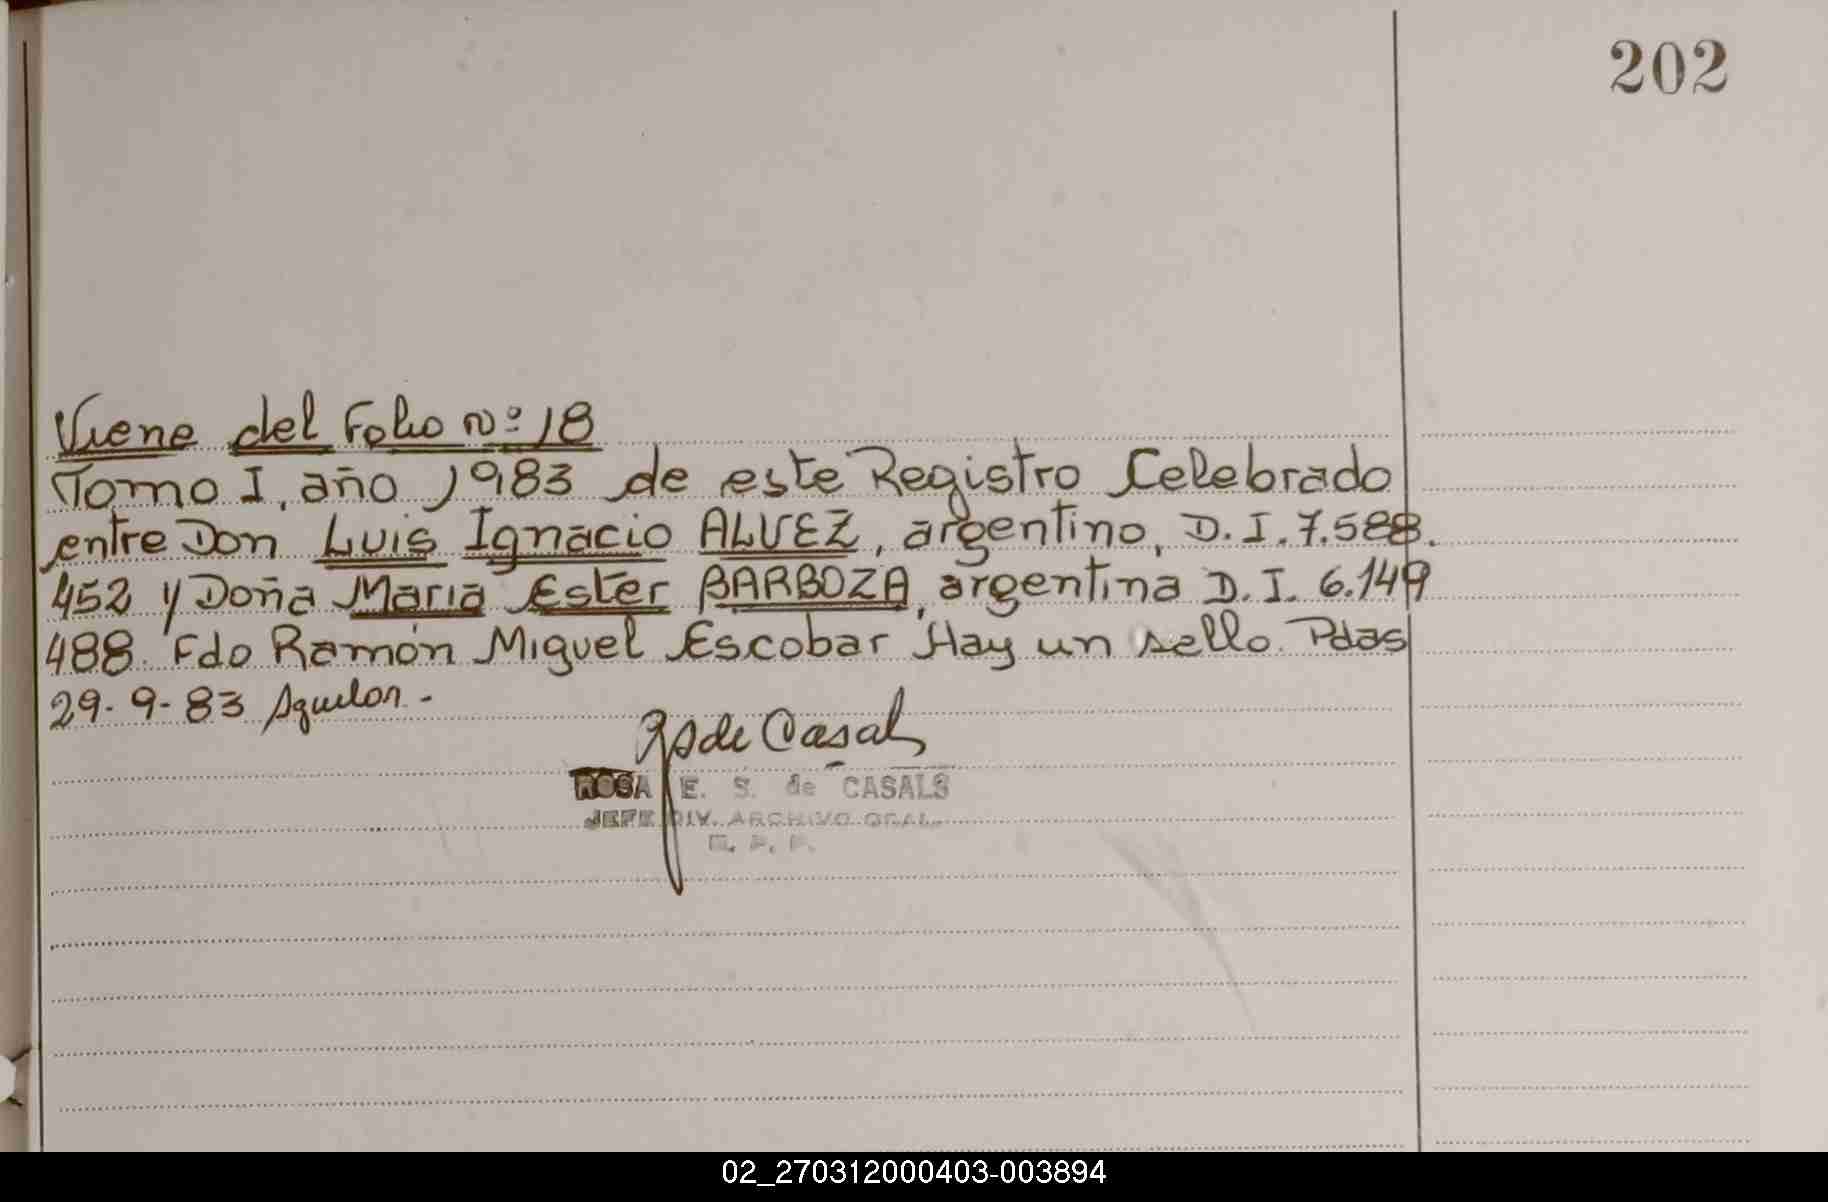 202
Viene del Folio Nº 18
Tomo I, año 1983 de este Registro Celebrado
entre Don Luis Ignacio ALVEZ, argentino, D.I. 7.588.
452 y Doña Maria Ester BARBOZA, argentina D.I. 6.149
488. Fdo Ramón Miguel Escobar Hay un sello. Pdas
29-9-83 Aguilar.-
RS de Casals
ROSA E. S. de CASALS
JEFE DIV. ARCHIVO GRAL.
R. P. P.
02_270312000403-003894